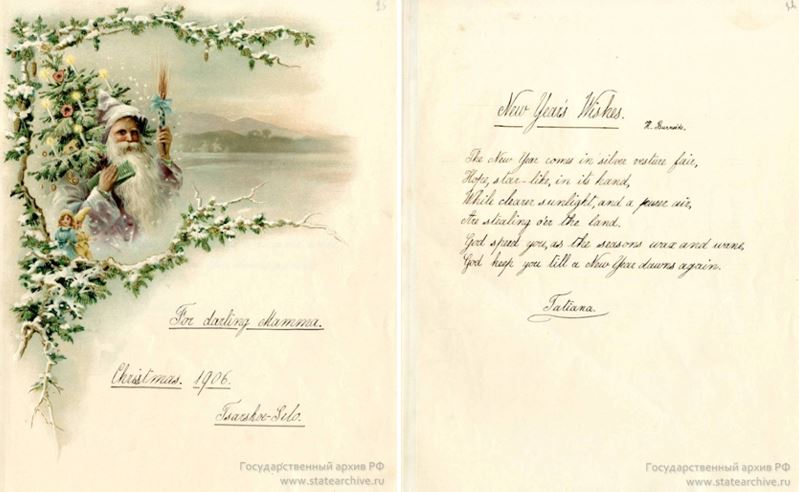 For darling Mamma.
Christmas. 1906.
Tsarskoe-Selo.
Государственный архив РФ
www.statearchive.ru
New Year's Wishes.
The New Year comes in silver vesture fair,
Hope, star-like, in its hand,
While clearer sunlight, and a purer air,
Are stealing o'er the land.
God speed you, as the seasons wax and wane,
God keep you till a New Year dawns again.
Tatiana.
Государственный архив РФ
www.statearchive.ru